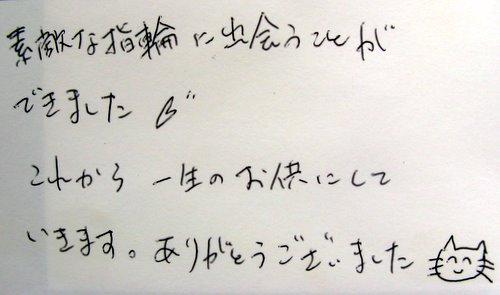 素敵な指輪に出会うことが
できました
これから一生のお供にして
いきます。ありがとうございました